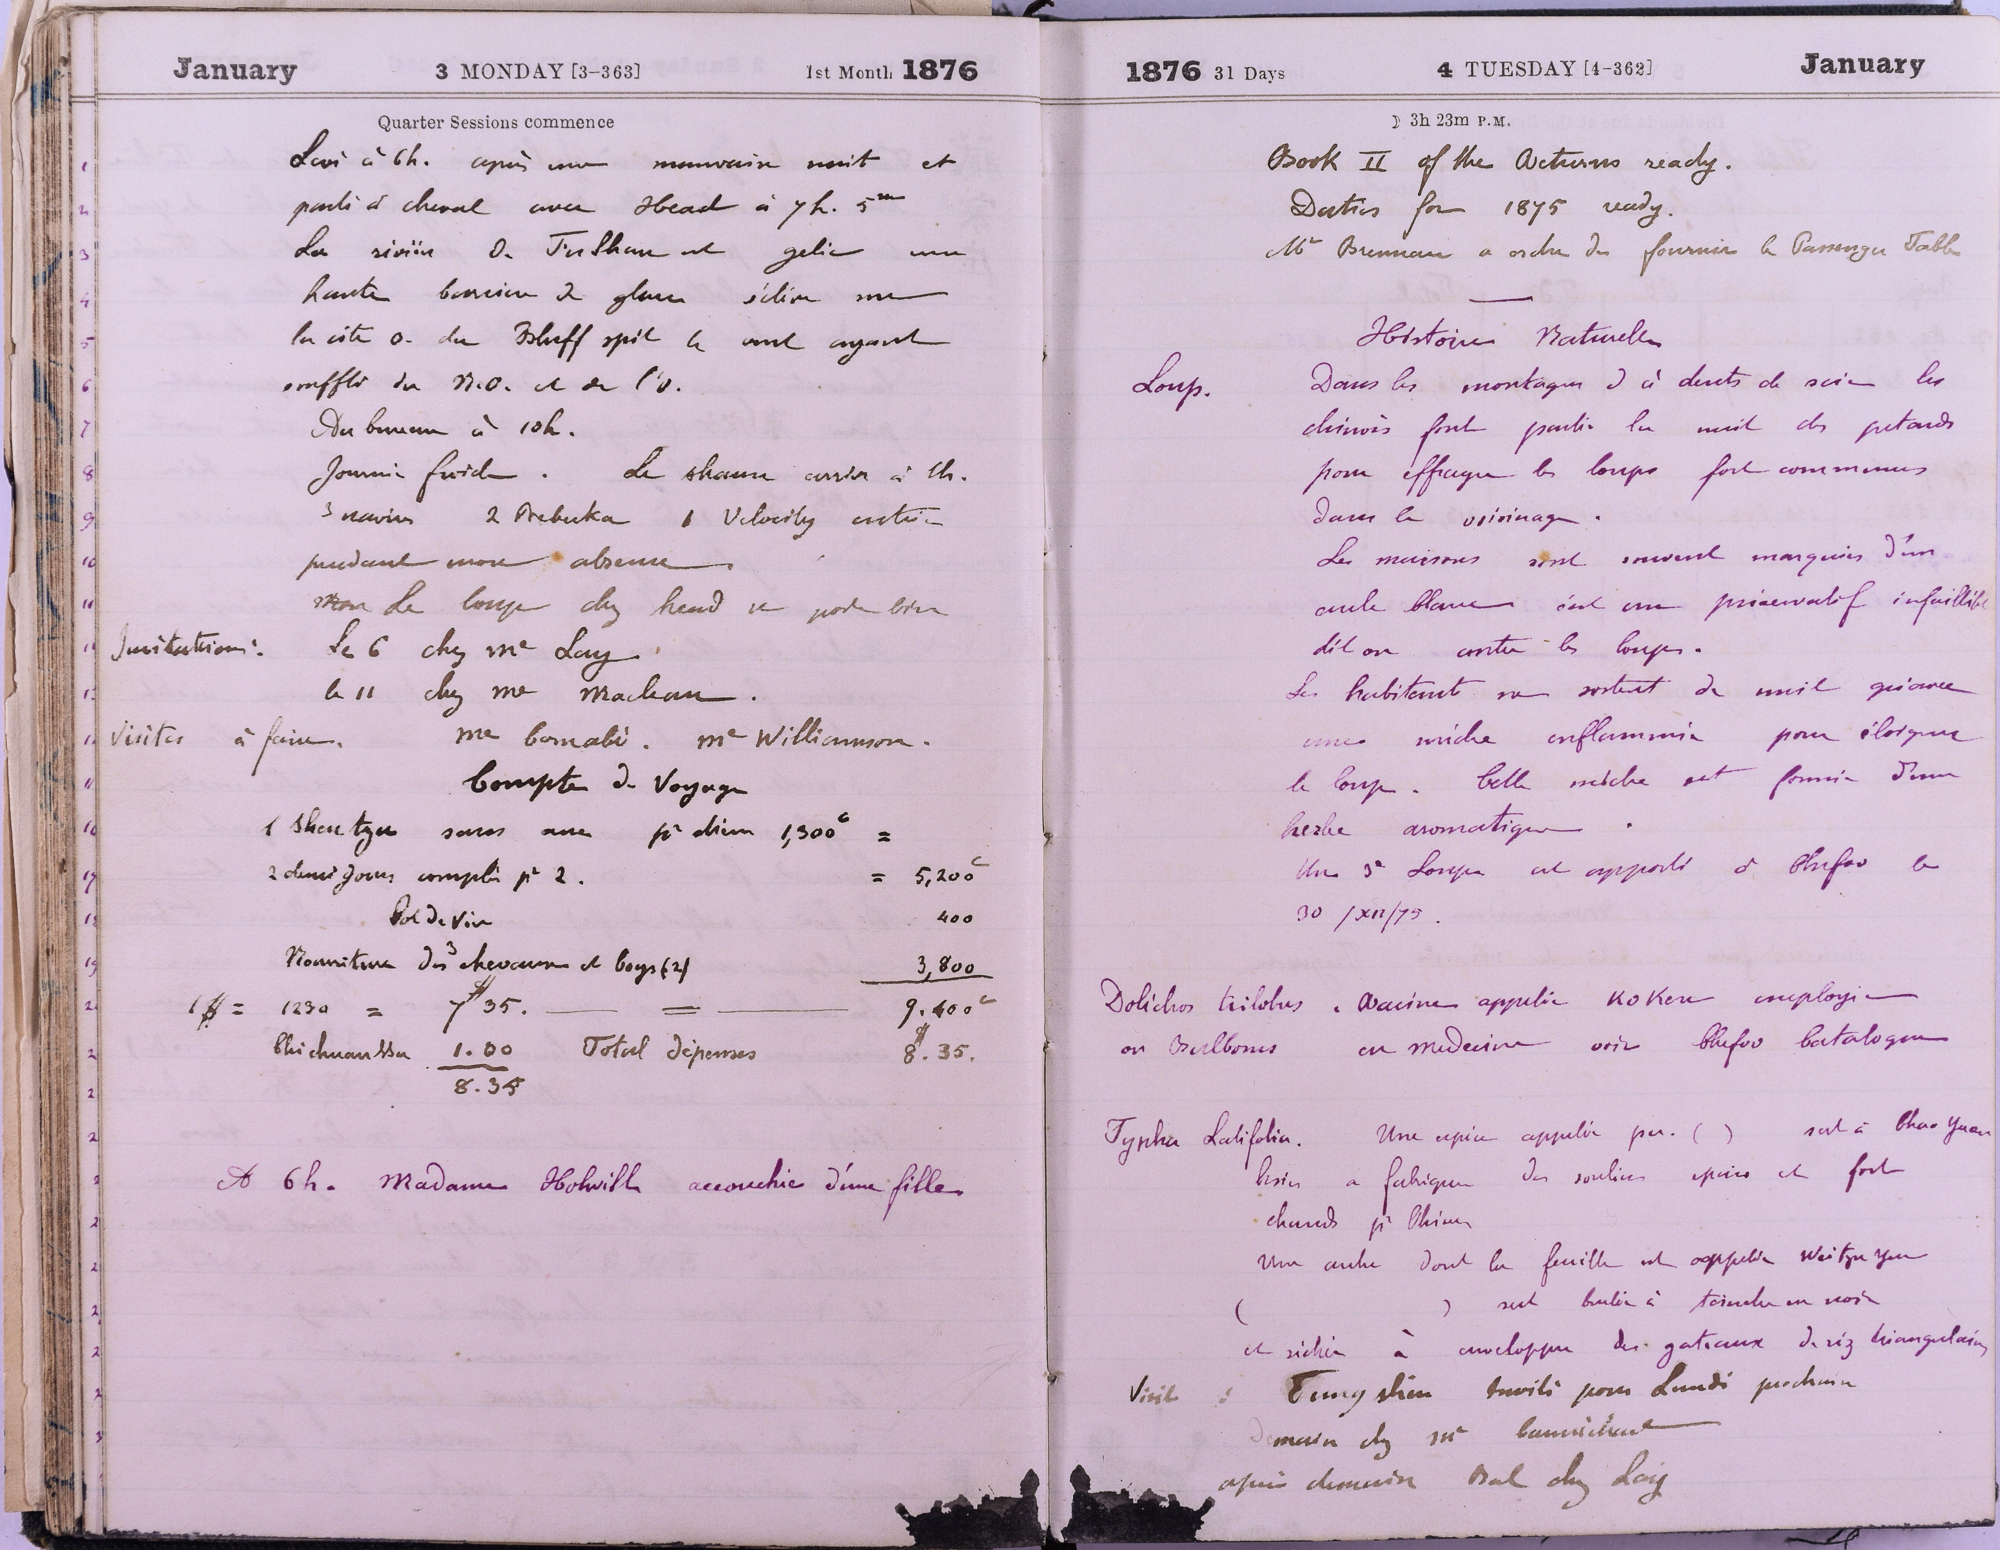 January 3 MONDAY [3-363] 1st Month 1876
Quarter Sessions commence
Levé à 6h. après une mauvaise nuit et
parti à cheval avec Head à 7h. 5m
La rivière de est gelée une
haute barrière de glace s'élève sur
la côte O. du Bluff spit le vent ayant
soufflé du N.O. et de l'O.
Au bureau à 10h.
Journée froide. Le arrive à 1h.
3 navires 2 Rebecka 1 Velocity entrés
pendant mon absence.
Le loup chez Head se porte bien
Invitations: Le 6 chez Mr Lay.
le 11 chez Mr Maclean.
Visites à faire. Me Carnabé. Mr Williamson.
Compte de Voyage
1 Shentzu sans ane pr diem 1,300c =
2 demi jours comptés pr 2. = 5,200c
Pot de Vin 400
Nourriture des 3 chevaux et boys (2) 3,800
1$ = 1230 = 7$35. — = — 9.400c
1.00 Total dépenses 8$.35.
8.35
A 6h. Madame Holwill accouchée d'une fille
1876 31 Days 4 TUESDAY [4-362] January
☽ 3h 23m P.M.
Book II of the Returns ready.
Duties for 1875 ready.
Mr Brennan a ordre de fournir le Passenger Table
Histoire Naturelle
Loup. Dans les montagnes à dents de scie les
chinois font partir la nuit des petards
pour effrayer les loups fort communs
dans le voisinage.
Les maisons sont souvent marquées d'un
cercle blanc c'est un préservatif infaillible
dit on contre les loups.
Les habitants ne sortent de nuit qu'avec
une mèche enflammée pour éloigner
le loup. Cette mèche est formée d'une
herbe aromatique.
Un 3e Loup est apporté à Chefoo le
30/XII/75.
Dolichos trilobus. Racine appelée KoKen employée
ou Bulbosus en medecine voir Chefoo Catalogue
Typha Latifolia. Une espèce appelée pu. ( ) sert à Chao Yuen
hsien a fabriquer des souliers épais et fort
chauds pr l'hiver
Une autre dont la feuille est appelée Weitzu yeu
( ) sert brulée à teindre en noir
et séchée à envelopper des gateaux de riz triangulaires
Visit : Tung shien invité pour Lundi prochain
Demain chez Mr Carmichael
après demain Bal chez Lay